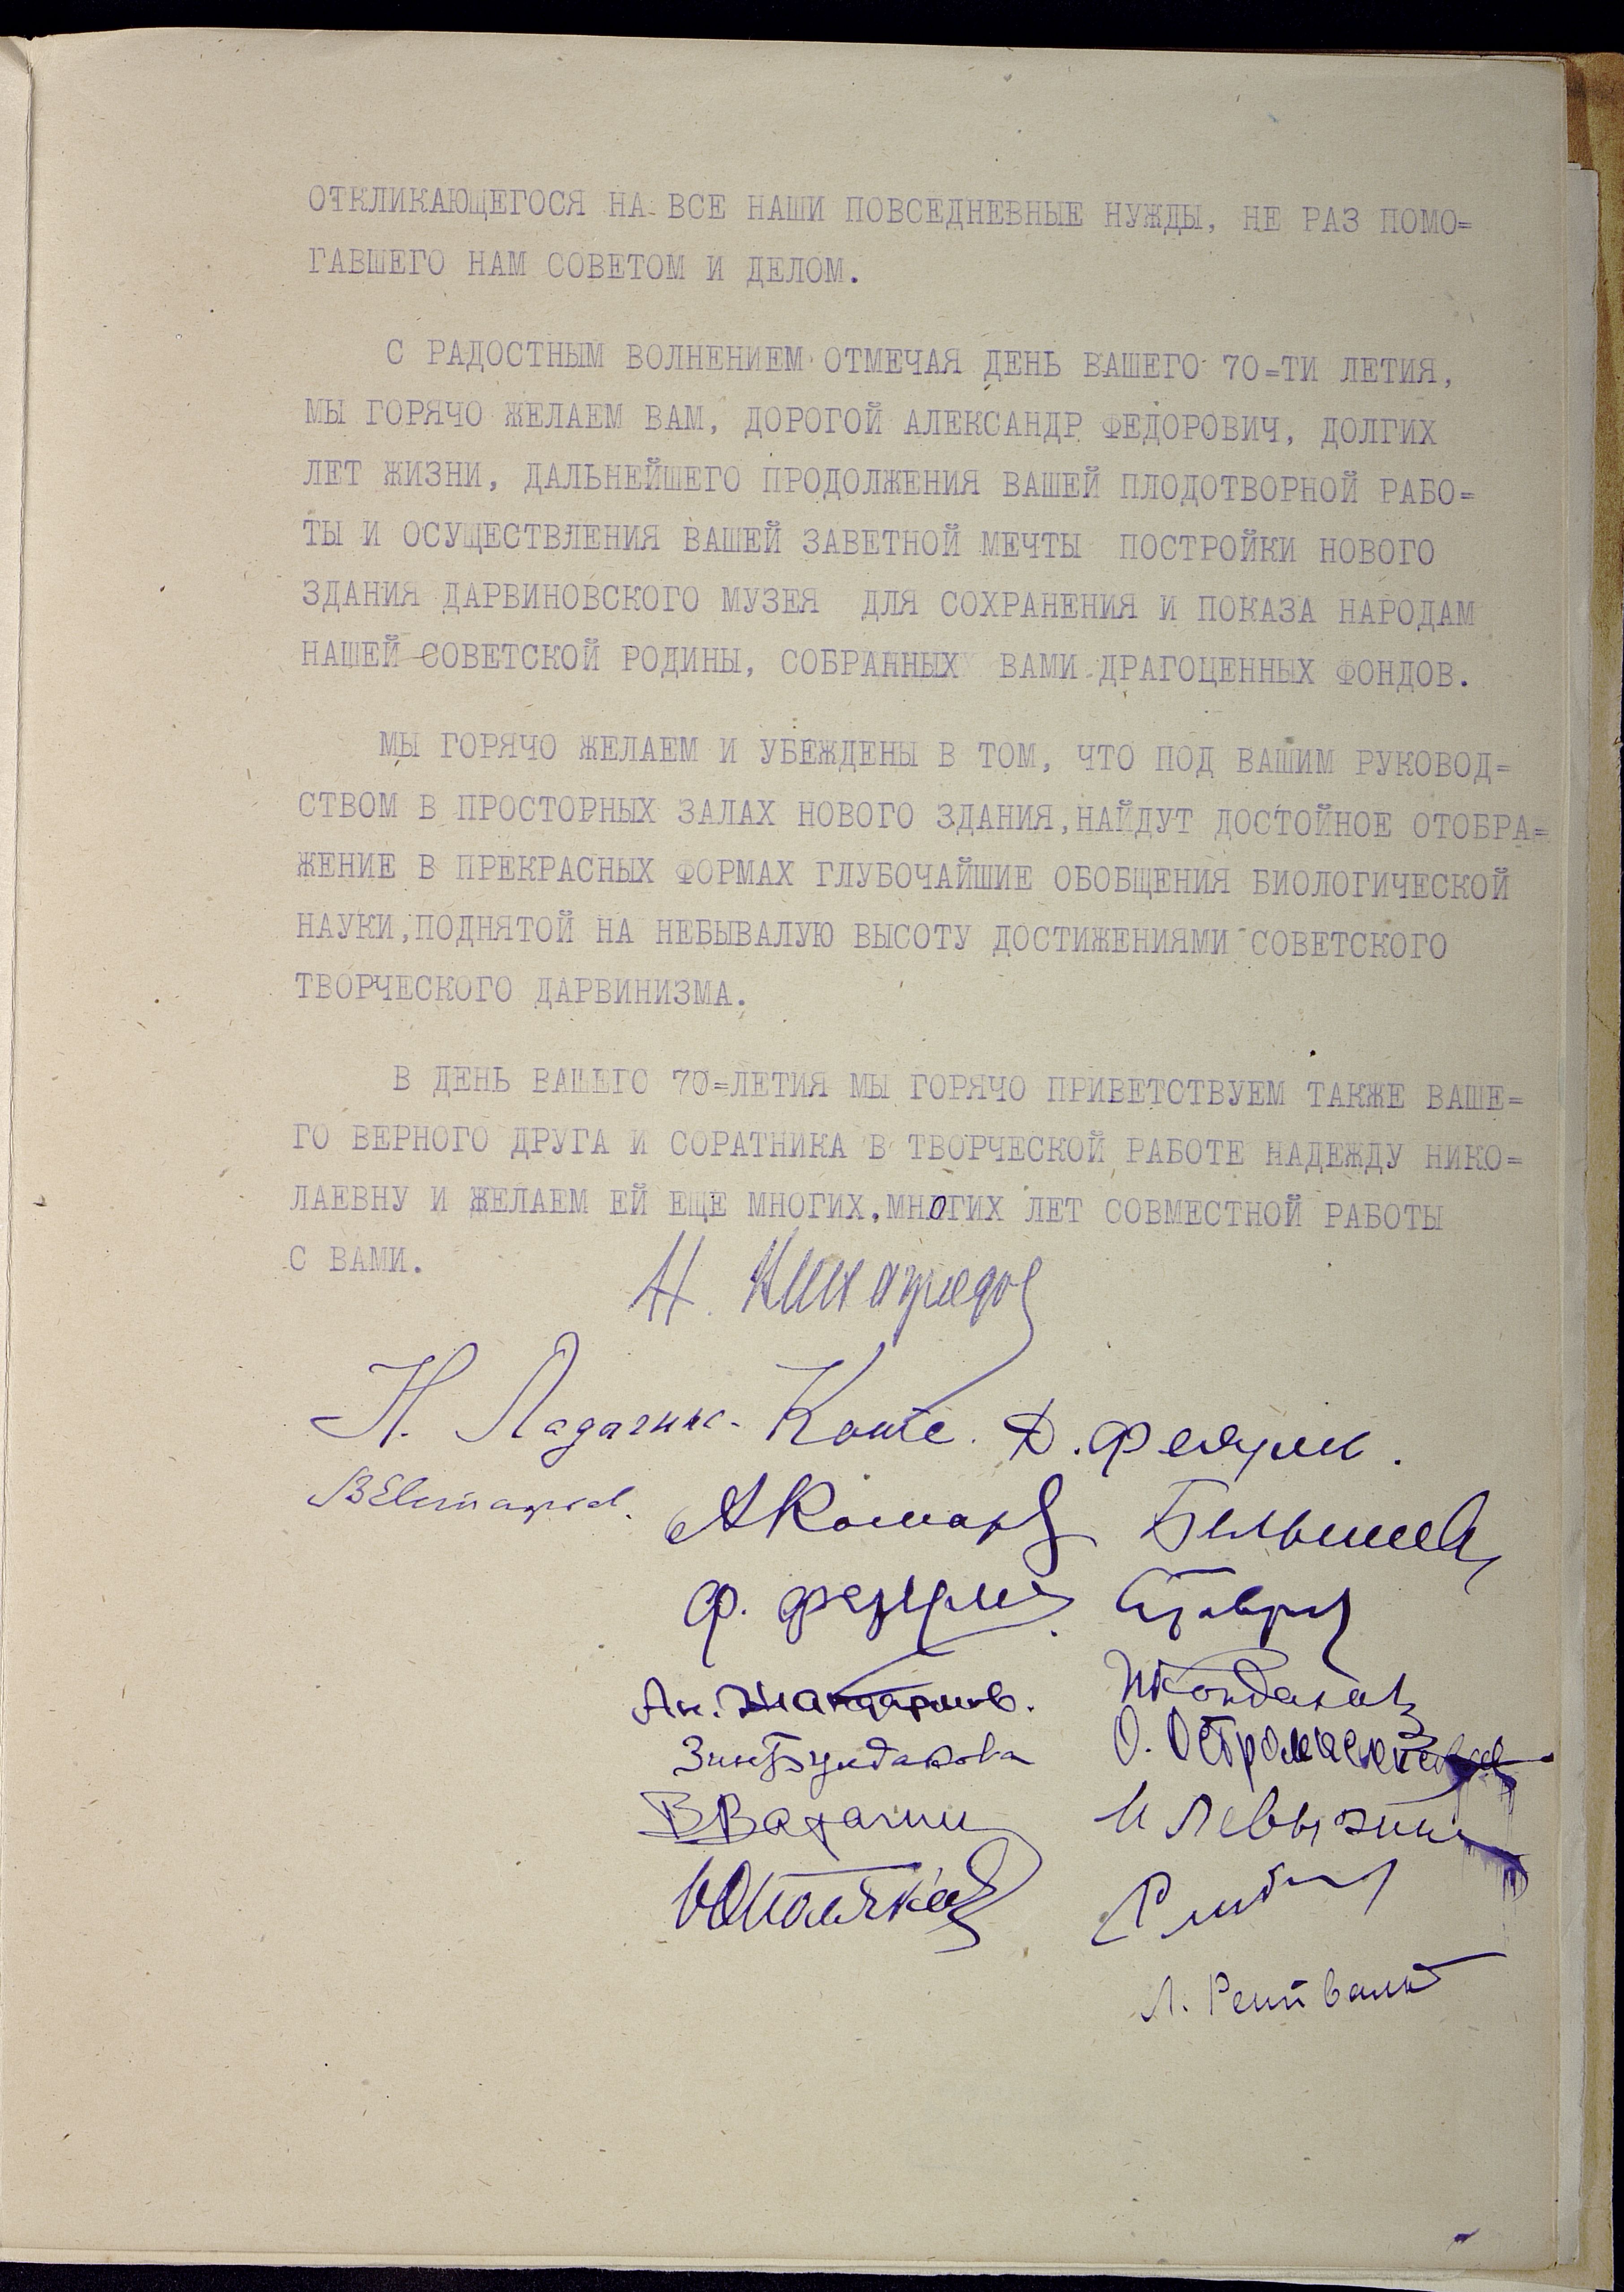 ОТКЛИКАЮЩЕГОСЯ НА ВСЕ НАШИ ПОВСЕДНЕВНЫЕ НУЖДЫ, НЕ РАЗ ПОМО=
ГАВШЕГО НАМ СОВЕТОМ И ДЕЛОМ.
С РАДОСТНЫМ ВОЛНЕНИЕМ ОТМЕЧАЯ ДЕНЬ ВАШЕГО 70=ТИ ЛЕТИЯ,
МЫ ГОРЯЧО ЖЕЛАЕМ ВАМ, ДОРОГОЙ АЛЕКСАНДР ФЕДОРОВИЧ, ДОЛГИХ
ЛЕТ ЖИЗНИ, ДАЛЬНЕЙШЕГО ПРОДОЛЖЕНИЯ ВАШЕЙ ПЛОДОТВОРНОЙ РАБО=
ТЫ И ОСУЩЕСТВЛЕНИЯ ВАШЕЙ ЗАВЕТНОЙ МЕЧТЫ ПОСТРОЙКИ НОВОГО
ЗДАНИЯ ДАРВИНОВСКОГО МУЗЕЯ ДЛЯ СОХРАНЕНИЯ И ПОКАЗА НАРОДАМ
НАШЕЙ СОВЕТСКОЙ РОДИНЫ, СОБРАННЫХ ВАМИ ДРАГОЦЕННЫХ ФОНДОВ.
МЫ ГОРЯЧО ЖЕЛАЕМ И УБЕЖДЕНЫ В ТОМ, ЧТО ПОД ВАШИМ РУКОВОД=
СТВОМ В ПРОСТОРНЫХ ЗАЛАХ НОВОГО ЗДАНИЯ, НАЙДУТ ДОСТОЙНОЕ ОТОБРА=
ЖЕНИЕ В ПРЕКРАСНЫХ ФОРМАХ ГЛУБОЧАЙШИЕ ОБОБЩЕНИЯ БИОЛОГИЧЕСКОЙ
НАУКИ, ПОДНЯТОЙ НА НЕБЫВАЛУЮ ВЫСОТУ ДОСТИЖЕНИЯМИ СОВЕТСКОГО
ТВОРЧЕСКОГО ДАРВИНИЗМА.
В ДЕНЬ ВАШЕГО 70=ЛЕТИЯ МЫ ГОРЯЧО ПРИВЕТСТВУЕМ ТАКЖЕ ВАШЕ=
ГО ВЕРНОГО ДРУГА И СОРАТНИКА В ТВОРЧЕСКОЙ РАБОТЕ НАДЕЖДУ НИКО=
ЛАЕВНУ И ЖЕЛАЕМ ЕЙ ЕЩЕ МНОГИХ, МНОГИХ ЛЕТ СОВМЕСТНОЙ РАБОТЫ
С ВАМИ.
Н. Ладыгина-Котс. Д. Федулов.
В Евстафьев. А Комаров
Ф. Федулов
И Кондаков
Зин Бундакова О.
В Ватагин И Левыкин
Ю Поляков
Л.